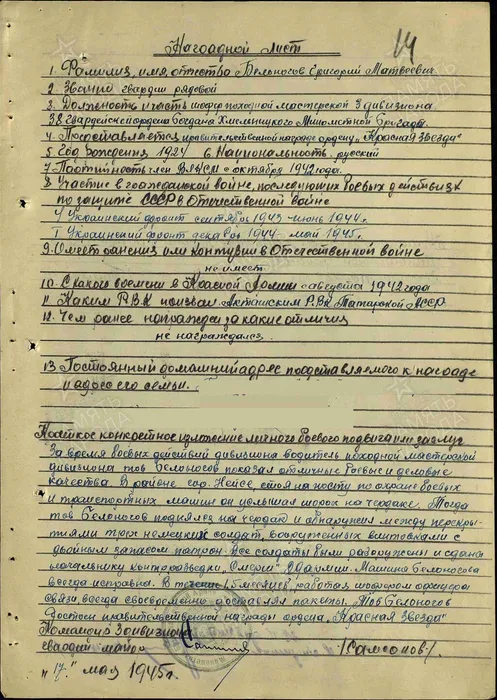 14
Наградной лист
1. Фамилия, имя, отчество Белоногов Григорий Матвеевич
2. Звание гвардии рядовой
3. Должность и часть шофер походной мастерской 3 дивизиона
38 гвардейской ордена Богдана Хмельницкого Минометной бригады
4. Представляется к правительственной награде ордену "Красная Звезда"
5. Год рождения 1924 6. Национальность русский
7. Партийность член ВЛКСМ с октября 1942 года.
8. Участие в гражданской войне, последующих боевых действиях
по защите СССР в Отечественной войне
4 Украинский фронт сентябрь 1943 - июнь 1944 г.
I Украинский фронт декабрь 1944 - май 1945 г.
9. Имеет ранения или контузии в Отечественной войне
не имеет
10. С какого времени в Красной Армии с августа 1942 года
11. Каким РВК призван Актанским РВК Татарской АССР
12. Чем ранее награжден за какие отличия
не награждался
13. Постоянный домашний адрес представляемого к награде
и адрес его семьи.
Краткое конкретное изложение личного боевого подвига или заслуг
За время боевых действий дивизиона водитель походной мастерской
дивизиона тов Белоногов показал отличные боевые и деловые
качества. В районе гор. Нейсе, стоя на посту по охране боевых
и транспортных машин он услышал шорох на чердаке. Тогда
тов Белоногов поднялся на чердак и обнаружил между перекры-
тиями трех немецких солдат, вооруженных винтовками с
двойным запасом патрон. Все солдаты были разоружены и сданы
начальнику контрразведки "Смерш" Машина Белоногова
всегда исправна. В течение 1,5 месяцев, работая шофером офицера
связи, всегда своевременно доставлял пакеты. Тов Белоногов
достоин правительственной награды ордена "Красная Звезда"
Командир 3 дивизиона
гвардии майор /Самсонов/
"17" мая 1945 г.